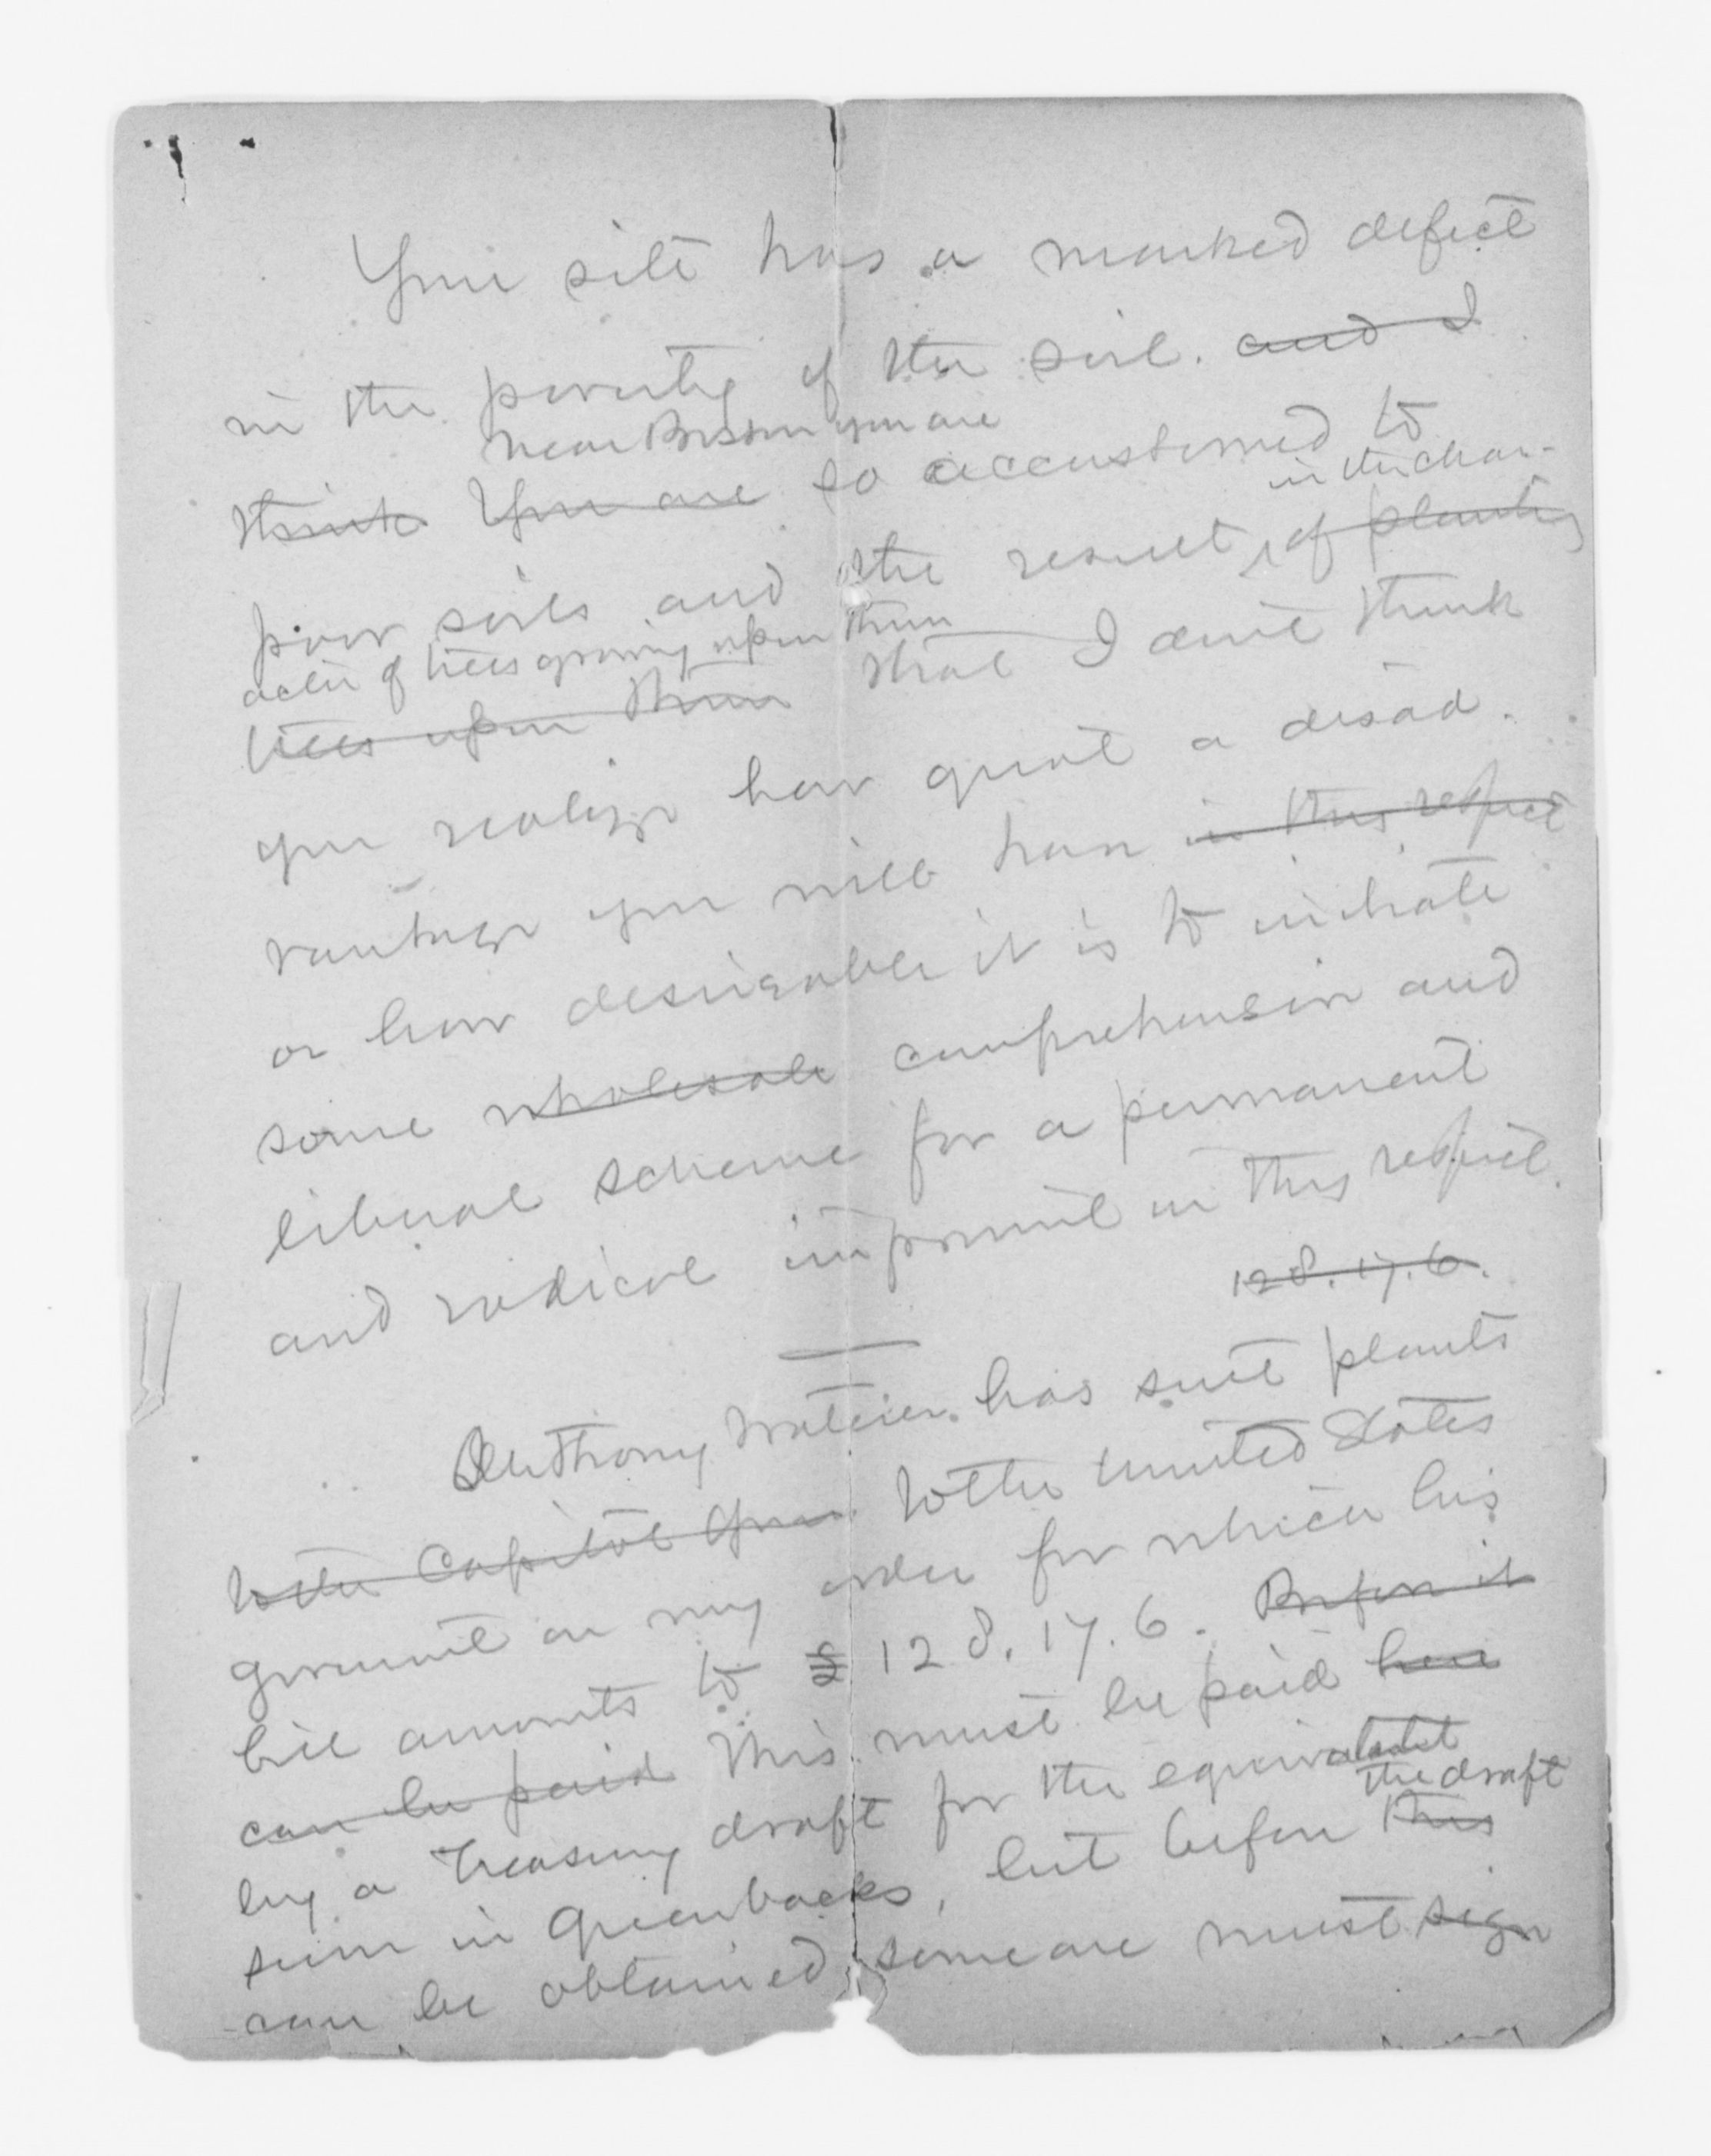 Your site has a marked defect
in the poverty of the soil. and I
near Boston you are
think You are so accustomed to
in the char-
poor soils and the result, of planting
acter of trees growing upon them
trees upon them that I don't think
you realize how great a disad-
vantage you will have in this respect
or how desirable it is to initiate
some wholesale comprehensive and
liberal scheme for a permanent
and radical improvment in this respect.
128.17.6.
Anthony Waterer has sent plants
to the Capitol Groun to the United States
government on my order for which his
bill amounts to £ 128.17.6. Before it
can be paid This must be paid here
by a Treasury draft for the equivalent
the draft
sum in Greenbacks, but before this
can be obtained some one must sign